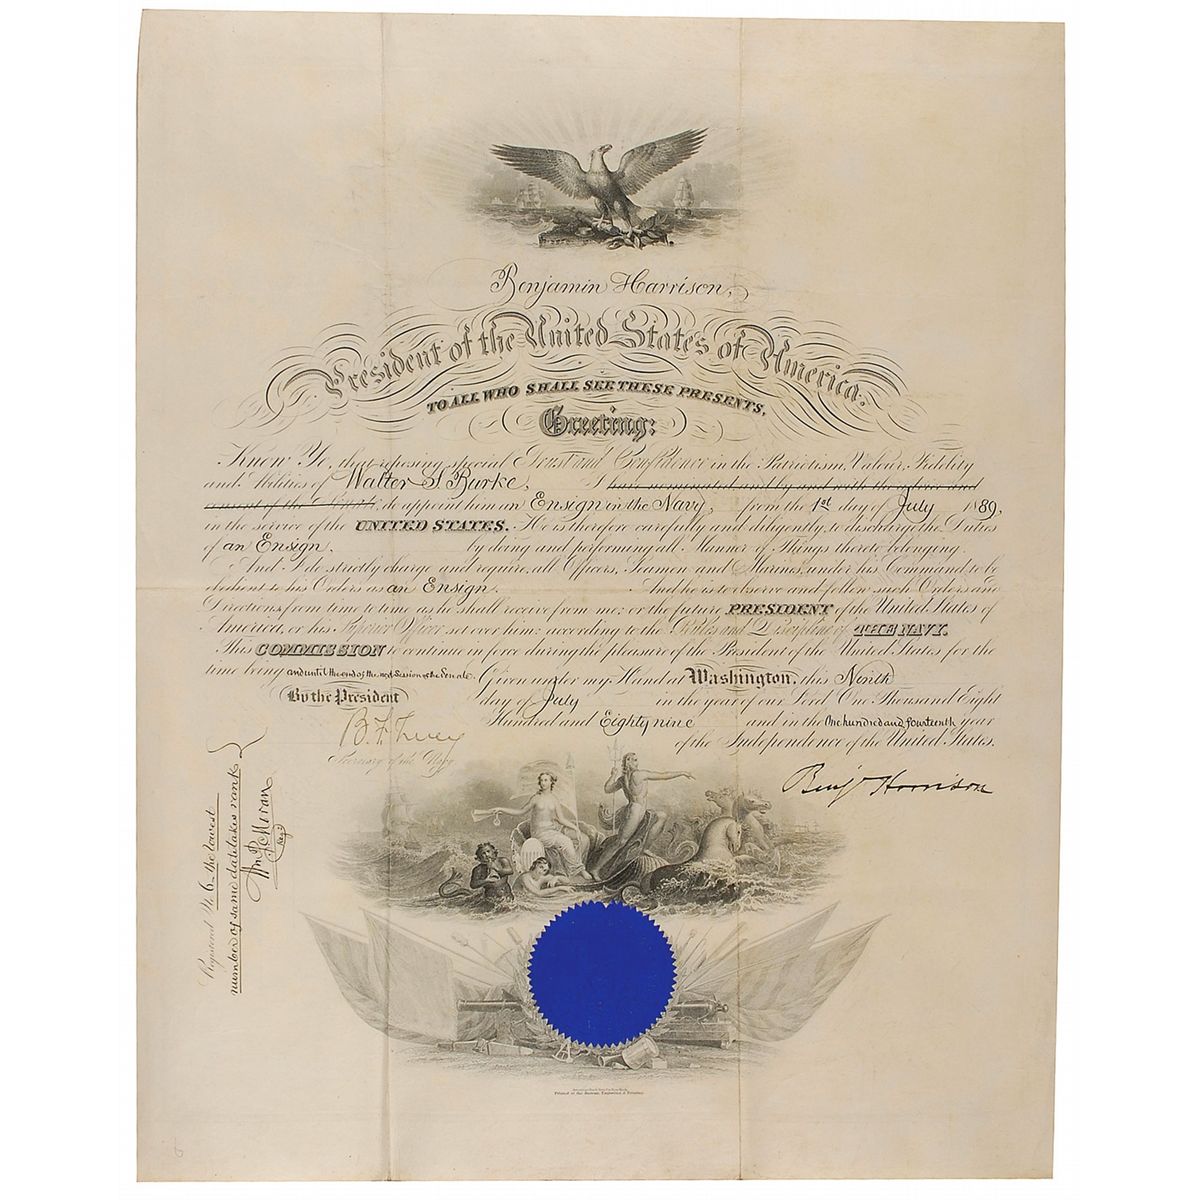 Benjamin Harrison,
President of the United States of America:
TO ALL WHO SHALL SEE THESE PRESENTS,
Greeting:
Know Ye, that reposing special Trust and Confidence in the Patriotism, Valour, Fidelity
and Abilities of Walter S Burke, I have nominated and by and with the advice and
consent of the Senate, do appoint him an Ensign in the Navy, from the 1st day of July 1889,
in the service of the UNITED STATES. He is therefore carefully and diligently to discharge the Duties
of an Ensign, by doing and performing all Manner of Things thereto belonging.
And I do strictly charge and require all Officers, Seamen and Marines, under his Command, to be
obedient to his Orders as an Ensign. And he is to observe and follow such Orders and
Directions from time to time as he shall receive from me, or the future PRESIDENT of the United States of
America, or his Superior Officer set over him, according to the Rules and Discipline of THE NAVY.
This COMMISSION to continue in force during the pleasure of the President of the United States for the
time being and until the end of the next Session of the Senate. Given under my Hand at Washington, this Ninth
By the President day of July in the year of our Lord One Thousand Eight
Hundred and Eighty nine and in the One hundred and fourteenth year
of the Independence of the United States.
B. F. Tracy
Secretary of the Navy
Benj Harrison
Registered No 6 - the lowest
number of same date takes rank
Wm P. Moran
Printed at the Bureau, Engraving & Printing.